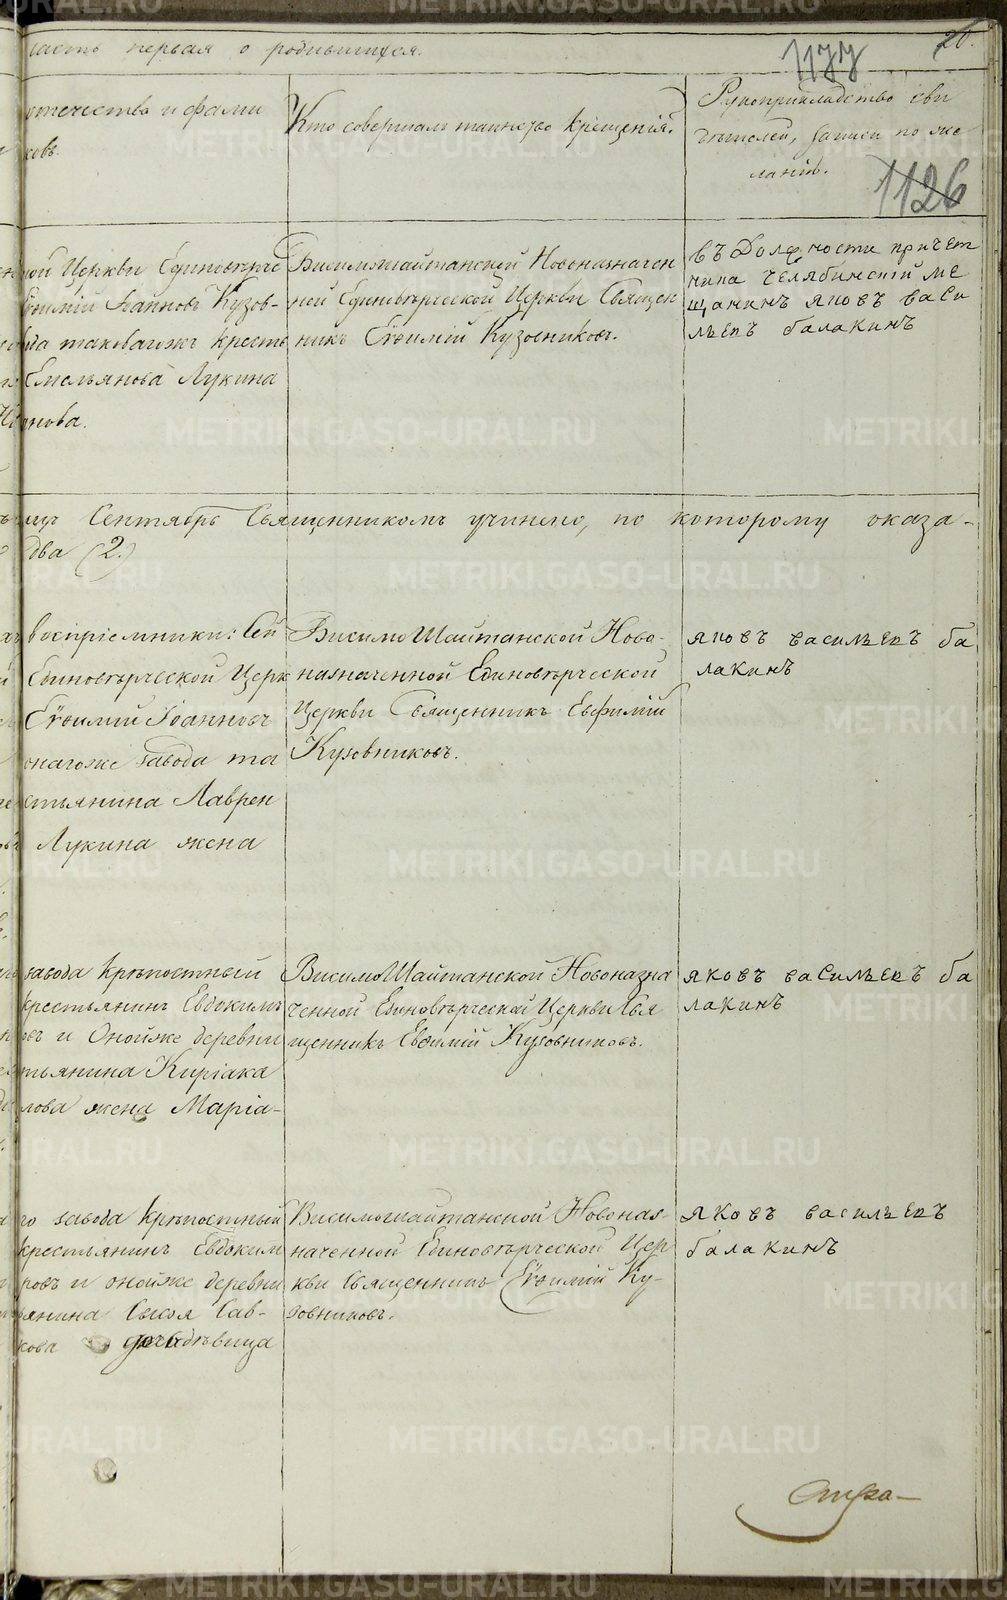 часть первая о родившихся.
1177
26.
отечества и фами
ковъ.
Кто совершал таинство крещенія.
Рукоприкладство сви
дѣтелей, записи по же
ланію.
1126
ной Церкви Единовѣрче
Евѳимій Іоанновъ Кузов-
да таковагожъ кресть
Емельянова Лукина
анова.
Висимошайтанской Новоназначен
ной Единовѣрческой Церкви Священ
никъ Евѳимій Кузовниковъ.
въ Должности причет
ника челябинскій ме
щанинъ яковъ васи
льевъ балакинъ
Сентябрь Священникомъ учинено, по которому оказа-
два (2.)
воспріемники: Сей
Единовѣрческой Церк
Евѳимій Іоанновъ
онагоже завода та
стьянина Лаврен
Лукина жена
Висимо Шайтанской Ново-
назначенной Единовѣрческой
Церкви Священникъ Евфимій
Кузовниковъ.
яковъ васильевъ ба
лакинъ
завода крѣпостный
крестьянинъ Евдокимъ
овъ и Онойже деревни
тьянина Киріака
лова жена Марія-
ВисимоШайтанской Новоназна
ченной Единовѣрческой Церкви Свя
щенникъ Евѳимій Кузовниковъ.
яковъ васильевъ ба
лакинъ
го завода крѣпостный
крестьянинъ Евдоким
ровъ и онойже деревни
янина Сысоя Сав-
кова дочь дѣвица
Висимошайтанской Новоназ-
наченной Единовѣрческой Цер
кви Священникъ Евѳимій Ку-
зовниковъ.
яковъ васильевъ
балакинъ
METRIKI.GASO-URAL.RU